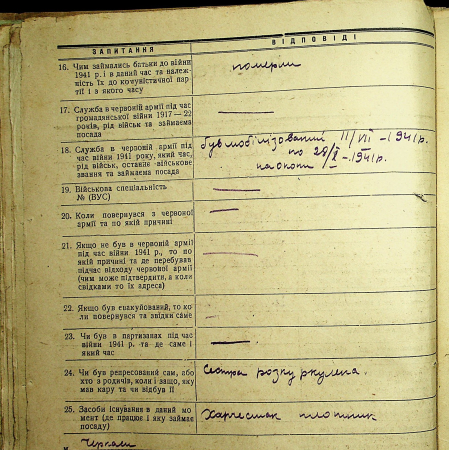 ЗАПИТАННЯ
ВІДПОВІДІ
16. Чим займались батьки до війни
1941 р. і в даний час та належ-
ність їх до комуністичної пар-
тії і з якого часу
померли
17. Служба в червоній армії під час
громадянської війни 1917—22
років, рід військ та займаєма
посада
18. Служба в червоній армії під
час війни 1941 року, який час,
рід військ, останнє військове
звання та займаєма посада
був мобілізований 11/VII – 1941р.
по 28/X – 1941р.
на окопи
19. Військова спеціальність
№ (ВУС)
20. Коли повернувся з червоної
армії та по якій причині
21. Якщо не був в червоній армії
під час війни 1941 р., то по
якій причині та де перебував
підчас відходу червоної армії
(чим може підтвердити, а коли
свідками то їх адреса)
22. Якщо був евакуйований, то ко-
ли повернувся та звідки саме
23. Чи був в партизанах під час
війни 1941 р. та де саме і
який час
24. Чи був репресований сам, або
хто з родичів, коли і защо, яку
мав кару та чи відбув її
Сестра розкуркулена.
25. Засоби існування в даний мо-
мент (де працює і яку займає
посаду)
плотник
Черкаси